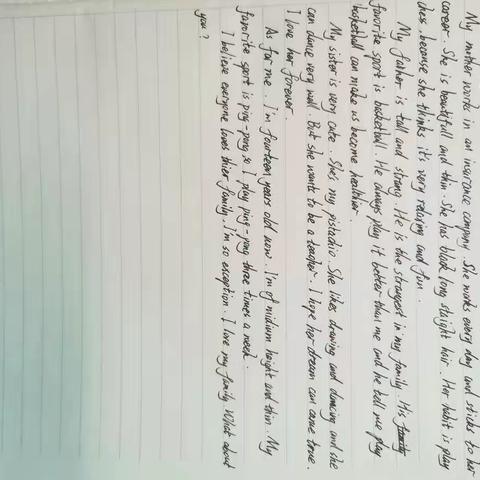 My mother works in an insurance company. She works every day and sticks to her
career. She is beautifull and thin. She has black long staight hair. Her habit is play
chess. because she thinks it's very relaxing and fun.
My father is tall and strong. He is the strongest in my family. His family
favorite sport is basketball. He always play it better than me and he tell me play
basketball can make us become healthier.
My sister is very cute. She's my pistachio. She likes drawing and dancing and she
can dance very well. But she wants to be a teacher. I hope her dream can came true.
I love her forever.
As for me. I'm fourteen years old now. I'm of midium height and thin. My
favorite sport is ping-pong so I play ping-pong three times a week.
I believe everyone loves thier family. I'm so exception. I love my family. What about
you?